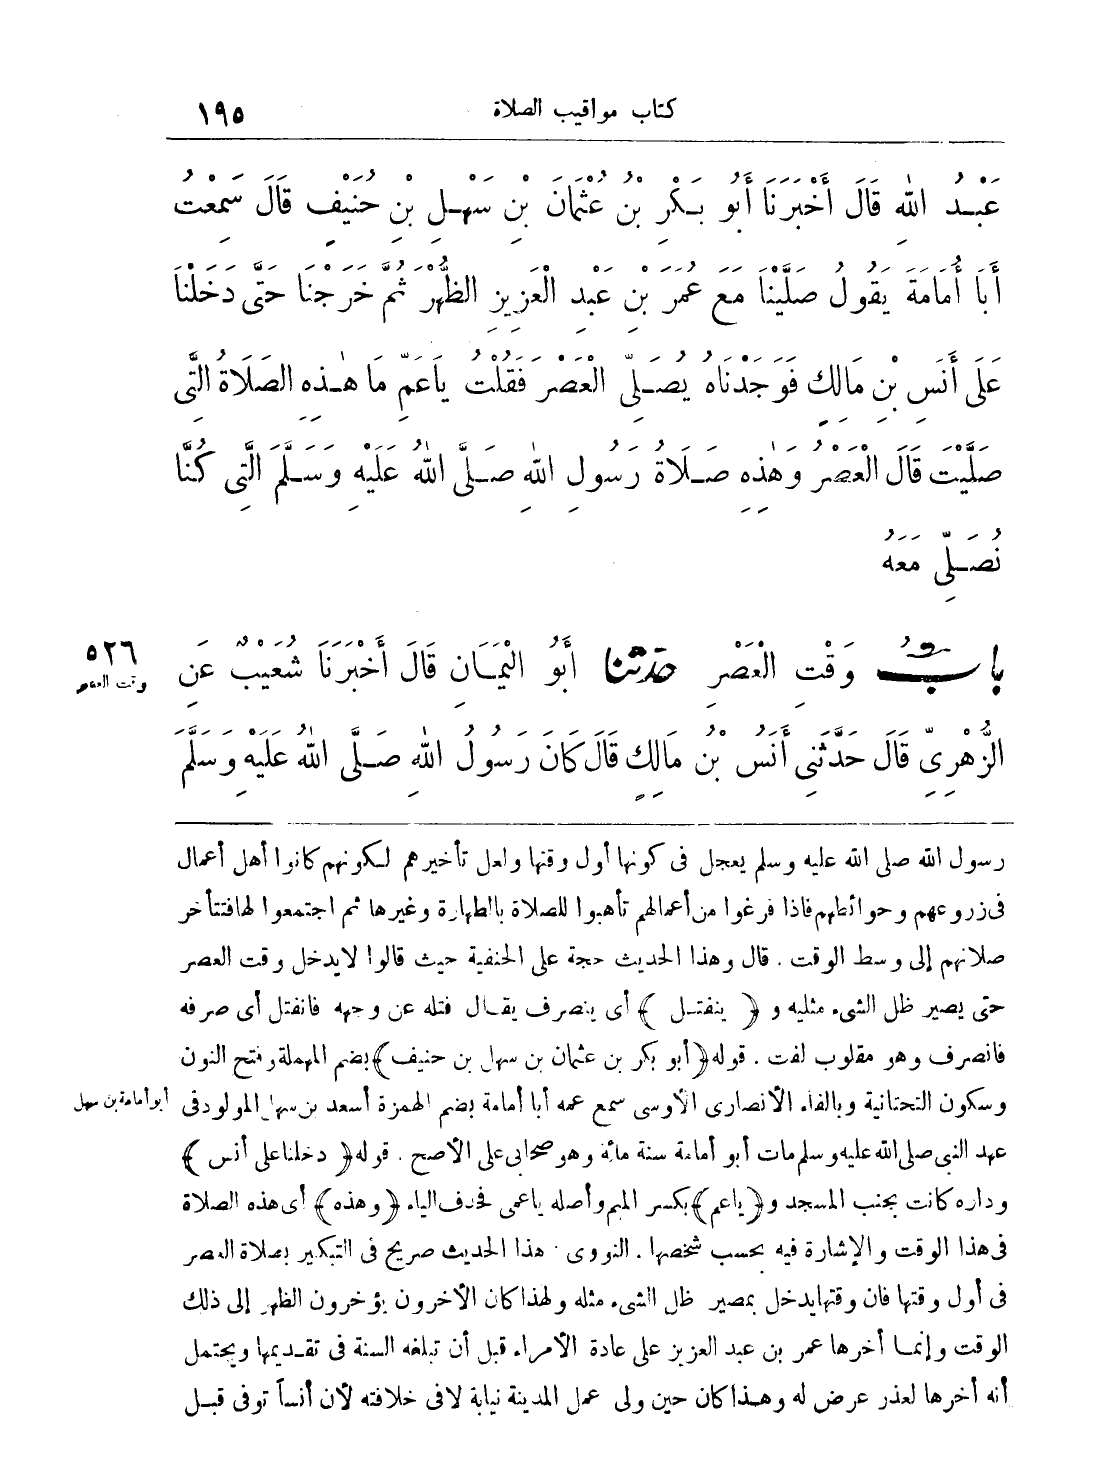 كتاب مواقيت الصلاة ١٩٥
عَبْدُ اللهِ قَالَ أَخْبَرَنَا أَبُو بَكْرِ بْنُ عُثْمَانَ بْنِ سَهْلِ بْنِ حُنَيْفٍ قَالَ سَمِعْتُ
أَبَا أُمَامَةَ يَقُولُ صَلَّيْنَا مَعَ عُمَرَ بْنِ عَبْدِ الْعَزِيزِ الظُّهْرَ ثُمَّ خَرَجْنَا حَتَّى دَخَلْنَا
عَلَى أَنَسِ بْنِ مَالِكٍ فَوَجَدْنَاهُ يُصَلِّى الْعَصْرَ فَقُلْتُ يَاعَمِّ مَا هٰذِهِ الصَّلَاةُ الَّتِى
صَلَّيْتَ قَالَ الْعَصْرُ وَهٰذِهِ صَلَاةُ رَسُولِ اللهِ صَلَّى اللهُ عَلَيْهِ وَسَلَّمَ الَّتِى كُنَّا
نُصَلِّى مَعَهُ
بَابُ وَقْتِ الْعَصْرِ حَدَّثَنَا أَبُو الْيَمَانِ قَالَ أَخْبَرَنَا شُعَيْبٌ عَنِ
٥٢٦
وقت العصر
الزُّهْرِىِّ قَالَ حَدَّثَنِى أَنَسُ بْنُ مَالِكٍ قَالَ كَانَ رَسُولُ اللهِ صَلَّى اللهُ عَلَيْهِ وَسَلَّمَ
رسول الله صلى الله عليه وسلم يعجل فى كونها أول وقتها ولعل تأخيرهم لكونهم كانوا أهل أعمال
فى زروعهم وحوائطهم فاذا فرغوا من أعمالهم تأهبوا للصلاة بالطهارة وغيرها ثم اجتمعوا لها فتتأخر
صلاتهم إلى وسط الوقت . قال وهذا الحديث حجة على الحنفية حيث قالوا لايدخل وقت العصر
حتى يصير ظل الشىء مثليه و ﴿ ينفتل ﴾ أى ينصرف يقال فتله عن وجهه فانفتل أى صرفه
فانصرف وهو مقلوب لفت . قوله ﴿أبو بكر بن عثمان بن سهل بن حنيف﴾ بضم المهملة وفتح النون
وسكون التحتانية وبالفاء الأنصارى الأوسى سمع عمه أبا أمامة بضم الهمزة أسعد بن سهل المولود فى
أبو أمامة بن سهل
عهد النبى صلى الله عليه وسلم مات أبو أمامة سنة مائة وهو صحابى على الأصح . قوله ﴿ دخلنا على أنس ﴾
وداره كانت بجنب المسجد و﴿ياعم﴾ بكسر الميم وأصله ياعمى فحذف الياء ﴿وهذه﴾ أى هذه الصلاة
فى هذا الوقت والإشارة فيه بحسب شخصها . النووى : هذا الحديث صريح فى التبكير بصلاة العصر
فى أول وقتها فان وقتها يدخل بمصير ظل الشىء مثله ولهذا كان الآخرون يؤخرون الظهر إلى ذلك
الوقت وإنما أخرها عمر بن عبد العزيز على عادة الأمراء قبل أن تبلغه السنة فى تقديمها ويحتمل
أنه أخرها لعذر عرض له وهذا كان حين ولى عمل المدينة نيابة لافى خلافته لأن أنسا توفى قبل